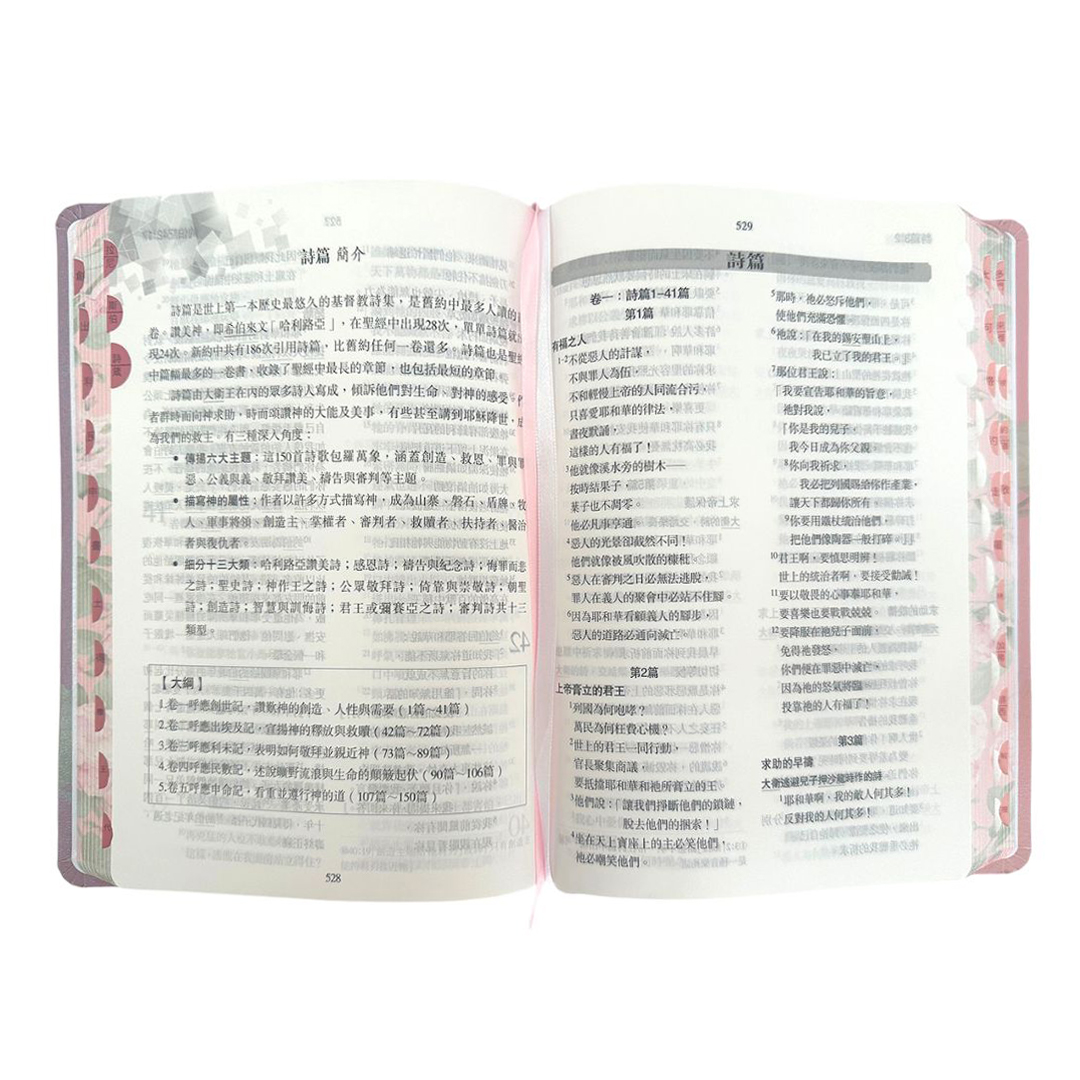 詩篇 簡介
詩篇是世上第一本歷史最悠久的基督教詩集，是舊約中最多人讀的
卷。讚美神，即希伯來文「哈利路亞」，在聖經中出現28次，單單詩篇就
現24次。新約中共有186次引用詩篇，比舊約任何一卷還多。詩篇也是聖
中篇幅最多的一卷書，收錄了聖經中最長的章節，也包括最短的章節。
詩篇由大衛王在內的眾多詩人寫成，傾訴他們對生命、對神的感受
者群時而向神求助，時而頌讚神的大能及美事，有些甚至講到耶穌降世，
為我們的救主。有三種深入角度：
• 傳揚六大主題：這150首詩歌包羅萬象，涵蓋創造、救恩、罪與
惡、公義與義、敬拜讚美、禱告與審判等主題。
• 描寫神的屬性：作者以許多方式描寫神，成為山寨、磐石、盾牌、牧
人、軍事將領、創造主、掌權者、審判者、救贖者、扶持者、醫治
者與復仇者。
• 細分十三大類：哈利路亞讚美詩；感恩詩；禱告與紀念詩；悔罪而悲
之詩；聖史詩；神作王之詩；公眾敬拜詩；倚靠與崇敬詩；朝聖
詩；創造詩；智慧與訓悔詩；君王或彌賽亞之詩；審判詩共十三
類型。
【大綱】
1.卷一呼應創世記，讚歎神的創造、人性與需要（1篇～41篇）
2.卷二呼應出埃及記，宣揚神的釋放與救贖（42篇～72篇）
3.卷三呼應利未記，表明如何敬拜並親近神（73篇～89篇）
4.卷四呼應民數記，述說曠野流浪與生命的顛簸起伏（90篇～106篇）
5.卷五呼應申命記，看重並遵行神的道（107篇～150篇）
528
529
詩篇
卷一：詩篇1-41篇
第1篇
有福之人
1-2不從惡人的計謀，
不與罪人為伍，
不和輕慢上帝的人同流合污，
只喜愛耶和華的律法，
晝夜默誦，
這樣的人有福了！
3他就像溪水旁的樹木——
按時結果子，
葉子也不凋零。
他必凡事亨通。
4惡人的光景卻截然不同！
他們就像被風吹散的糠秕。
5惡人在審判之日必無法逃脫，
罪人在義人的聚會中必站不住腳。
6因為耶和華看顧義人的腳步，
惡人的道路必通向滅亡。
第2篇
上帝膏立的君王
1列國為何咆哮？
萬民為何枉費心機？
2世上的君王一同行動，
官長聚集商議，
要抵擋耶和華和祂所膏立的王。
3他們說：「讓我們掙斷他們的鎖鏈，
脫去他們的捆索！」
4坐在天上寶座上的主必笑他們，
祂必嘲笑他們。
5那時，祂必怒斥他們，
使他們充滿恐懼。
6祂說：「在我的錫安聖山上，
我已立了我的君王。」
7那位君王說：
「我要宣告耶和華的旨意，
祂對我說，
『你是我的兒子，
我今日成為你父親。
8你向我祈求，
我必把列國賜給你作產業，
讓天下都歸你所有。
9你要用鐵杖治他們，
把他們像陶器一般打碎。』」
10君王啊，要慎思明辨！
世上的統治者啊，要接受勸誡！
11要以敬畏的心事奉耶和華，
要喜樂也要戰戰兢兢。
12要降服在祂兒子面前，
免得祂發怒，
你們便在罪惡中滅亡，
因為祂的怒氣將臨。
投靠祂的人有福了！
第3篇
求助的早禱
大衛逃避兒子押沙龍時作的詩
1耶和華啊，我的敵人何其多！
反對我的人何其多！